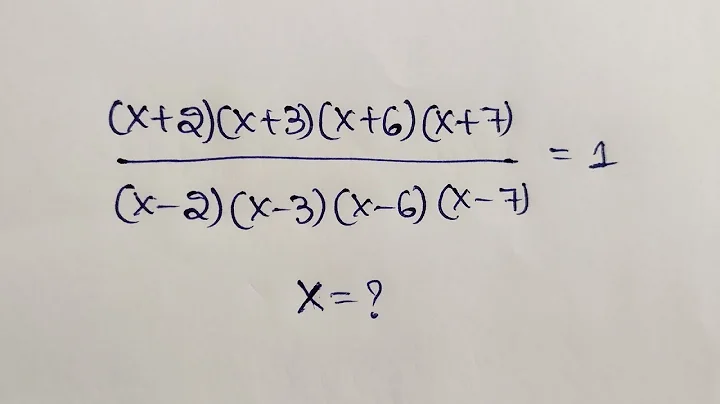 (x+2)(x+3)(x+6)(x+7)
(x-2)(x-3)(x-6)(x-7)
= 1
x = ?